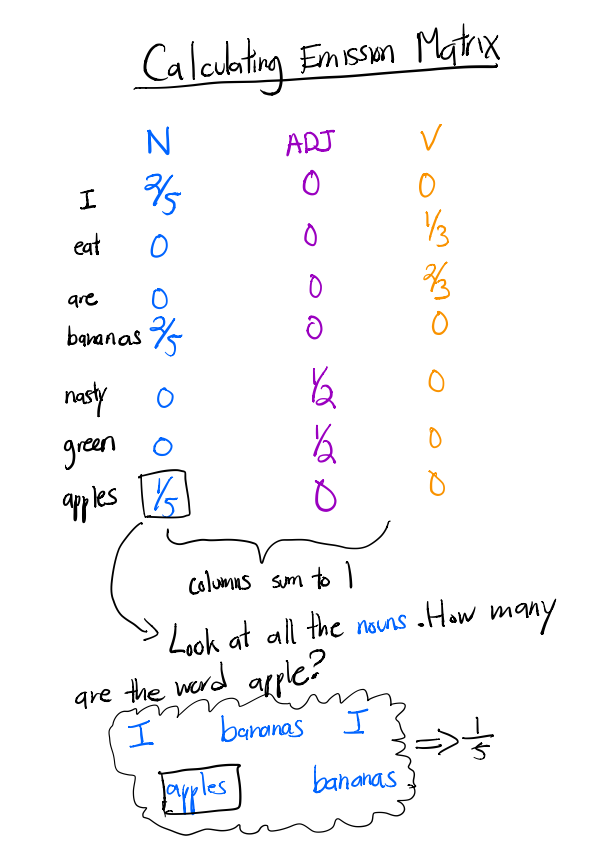 Calculating Emission Matrix
N ADJ V
I 2/5 0 0
eat 0 0 1/3
are 0 0 2/3
bananas 2/5 0 0
nasty 0 1/2 0
green 0 1/2 0
apples 1/5 0 0
columns sum to 1
Look at all the nouns. How many
are the word apple?
I bananas I
apples bananas
⇒ 1/5